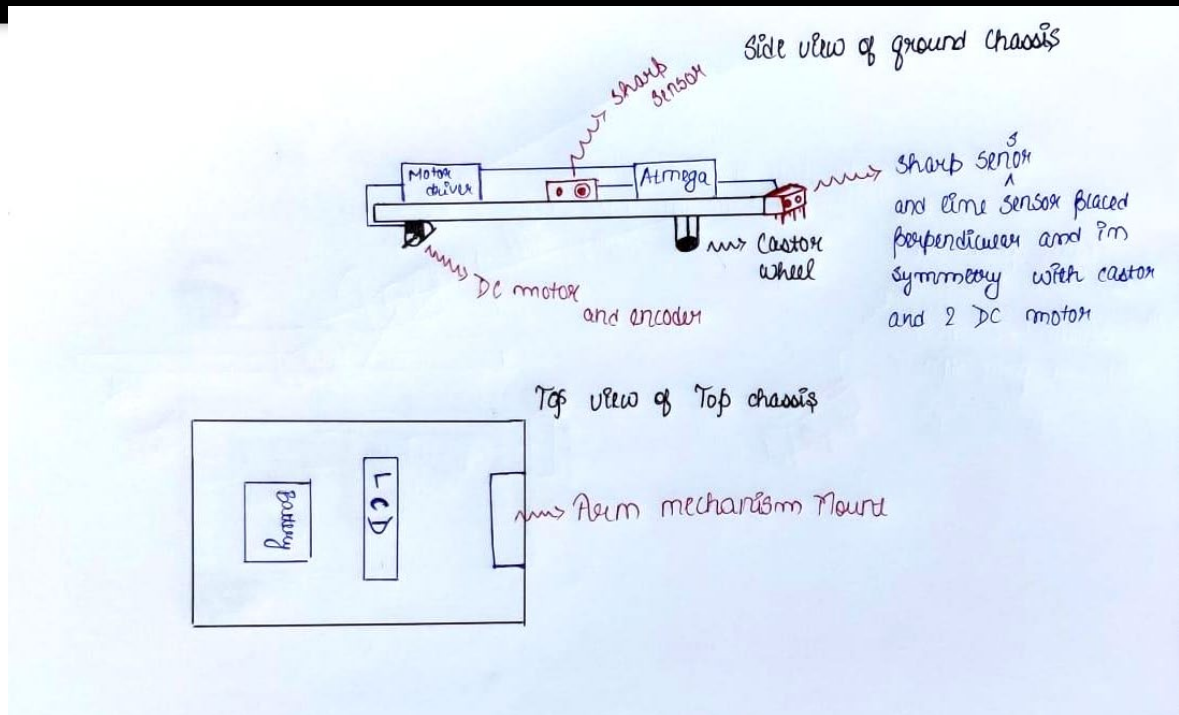 Side view of ground chassis
sharp
sensor
Motor
driver
Atmega
sharp senor
s
^
and line sensor placed
perpendicular and in
symmetry with castor
and 2 DC motor
Castor
wheel
DC motor
and encoder
Top view of Top chassis
Battery
LCD
Arm mechanism Mount